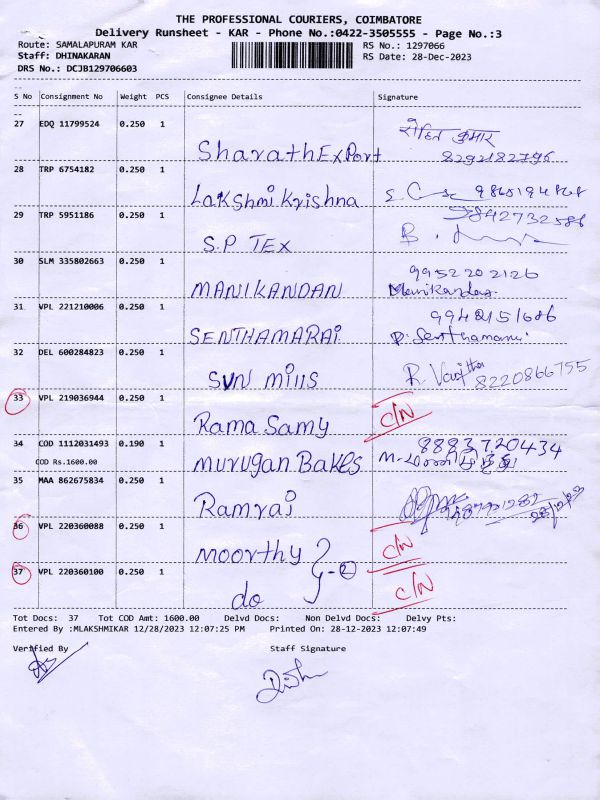 THE PROFESSIONAL COURIERS, COIMBATORE
Delivery Runsheet - KAR - Phone No.:0422-3505555 - Page No.:3
Route: SAMALAPURAM KAR RS No.: 1297066
Staff: DHINAKARAN RS Date: 28-Dec-2023
DRS No.: DCJB129706603
S No Consignment No Weight PCS Consignee Details Signature
27 EDQ 11799524 0.250 1 Sharath Export रोहित कुमार
8292182796
28 TRP 6754182 0.250 1 Lakshmi Krishna
29 TRP 5951186 0.250 1 S.P TEX 9842732586
30 SLM 335802663 0.250 1 MANIKANDAN 9952202126
Manikandan
31 VPL 221210006 0.250 1 SENTHAMARAI
32 DEL 600284823 0.250 1 SUN mills 8220866755
33 VPL 219036944 0.250 1 Rama Samy C/N
34 COD 1112031493 0.190 1 murugan Bakes 8883720434
COD Rs.1600.00
35 MAA 862675834 0.250 1 Ramraj
36 VPL 220360088 0.250 1 moorthy } - 2 C/N
37 VPL 220360100 0.250 1 do C/N
Tot Docs: 37 Tot COD Amt: 1600.00 Delvd Docs: Non Delvd Docs: Delvy Pts:
Entered By :MLAKSHMIKAR 12/28/2023 12:07:25 PM Printed On: 28-12-2023 12:07:49
Verified By Staff Signature